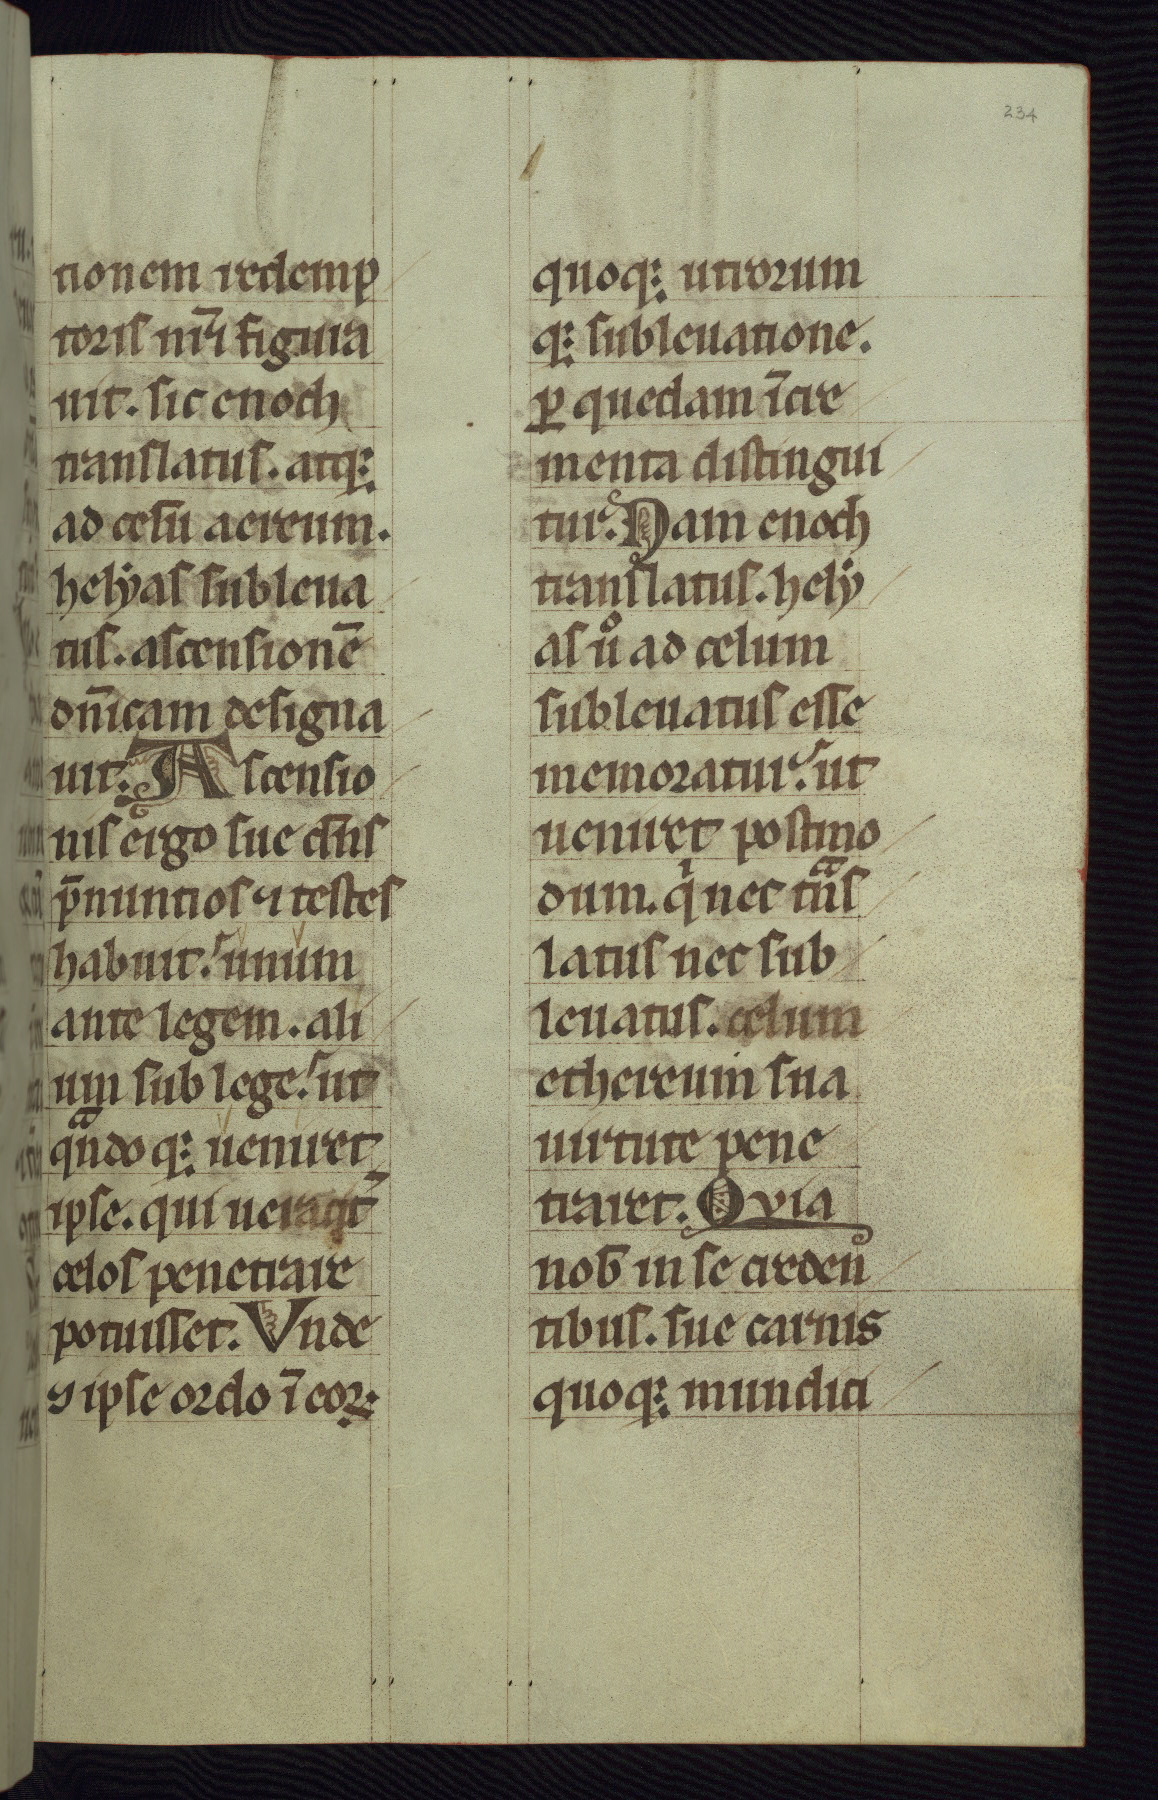 234
tionem redemp
toris nr̄i figura
uit. sic enoch
translatus. atq;
ad celū aereum.
helẏas subleua
tus. ascensionē
dn̄icam designa
uit. Ascensio
nis ergo sue dn̄s
p̄nuntios ⁊ testes
habuit. unum
ante legem. ali
um sub lege. ut
qn̄do q; ueniret
ipse. qui
celos penetrare
potuisset. Vnde
⁊ ipse ordo ī eoꝝ
quoq; utrorum
q; subleuatione.
ꝑ quedam īcre
menta distingui
tur. Nam enoch
translatus. helẏ
as uͦ ad celum
subleuatus esse
memoratur. ut
ueniret postmo
dum. qⁱ nec tᵃns
latus nec sub
leuatus. celum
ethereum sua
uirtute pene
traret. Qvia
nob̄ in se creden
tibus. sue carnis
quoq; mundici